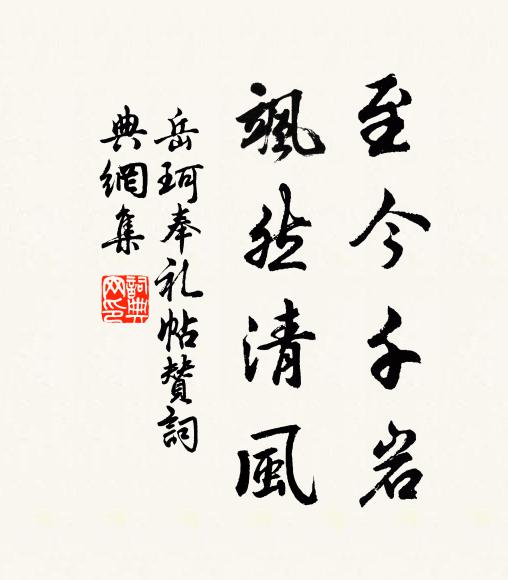 至今千岩
颯然清風
岳珂奉礼帖赞詞
典網集
詞典网印